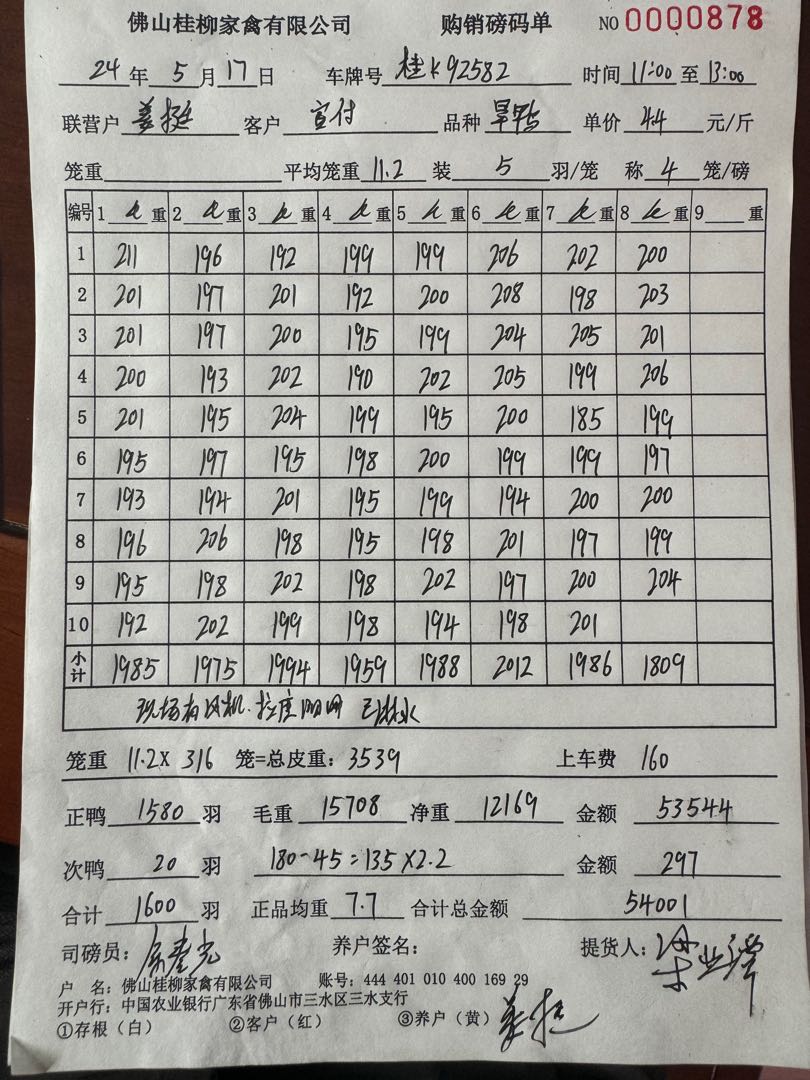 佛山桂柳家禽有限公司 购销磅码单 NO 0000878
24 年 5 月 17 日 车牌号 桂K92582 时间 11:00 至 13:00
联营户 姜挺 客户 宣付 品种 旱鸭 单价 4.4 元/斤
笼重 平均笼重 11.2 装 5 羽/笼 称 4 笼/磅
编号 1 毛 重 2 毛 重 3 毛 重 4 毛 重 5 毛 重 6 毛 重 7 毛 重 8 毛 重 9 重
1 211 196 192 199 199 206 202 200
2 201 197 201 192 200 208 198 203
3 201 197 200 195 199 204 205 201
4 200 193 202 190 202 205 199 206
5 201 195 204 199 195 200 185 199
6 195 197 195 198 200 199 199 197
7 193 194 201 195 199 194 200 200
8 196 206 198 195 198 201 197 199
9 195 198 202 198 202 197 200 204
10 192 202 199 198 194 198 201
小计 1985 1975 1994 1959 1988 2012 1986 1809
现场有风机.拉 网 已淋水
笼重 11.2X 316 笼=总皮重: 3539 上车费 160
正鸭 1580 羽 毛重 15708 净重 12169 金额 53544
次鸭 20 羽 180-45=135X2.2 金额 297
合计 1600 羽 正品均重 7.7 合计总金额 54001
司磅员: 养户签名: 提货人:
户 名: 佛山桂柳家禽有限公司 账号: 444 401 010 400 169 29
开户行: 中国农业银行广东省佛山市三水区三水支行
①存根（白） ②客户（红） ③养户（黄） 姜挺